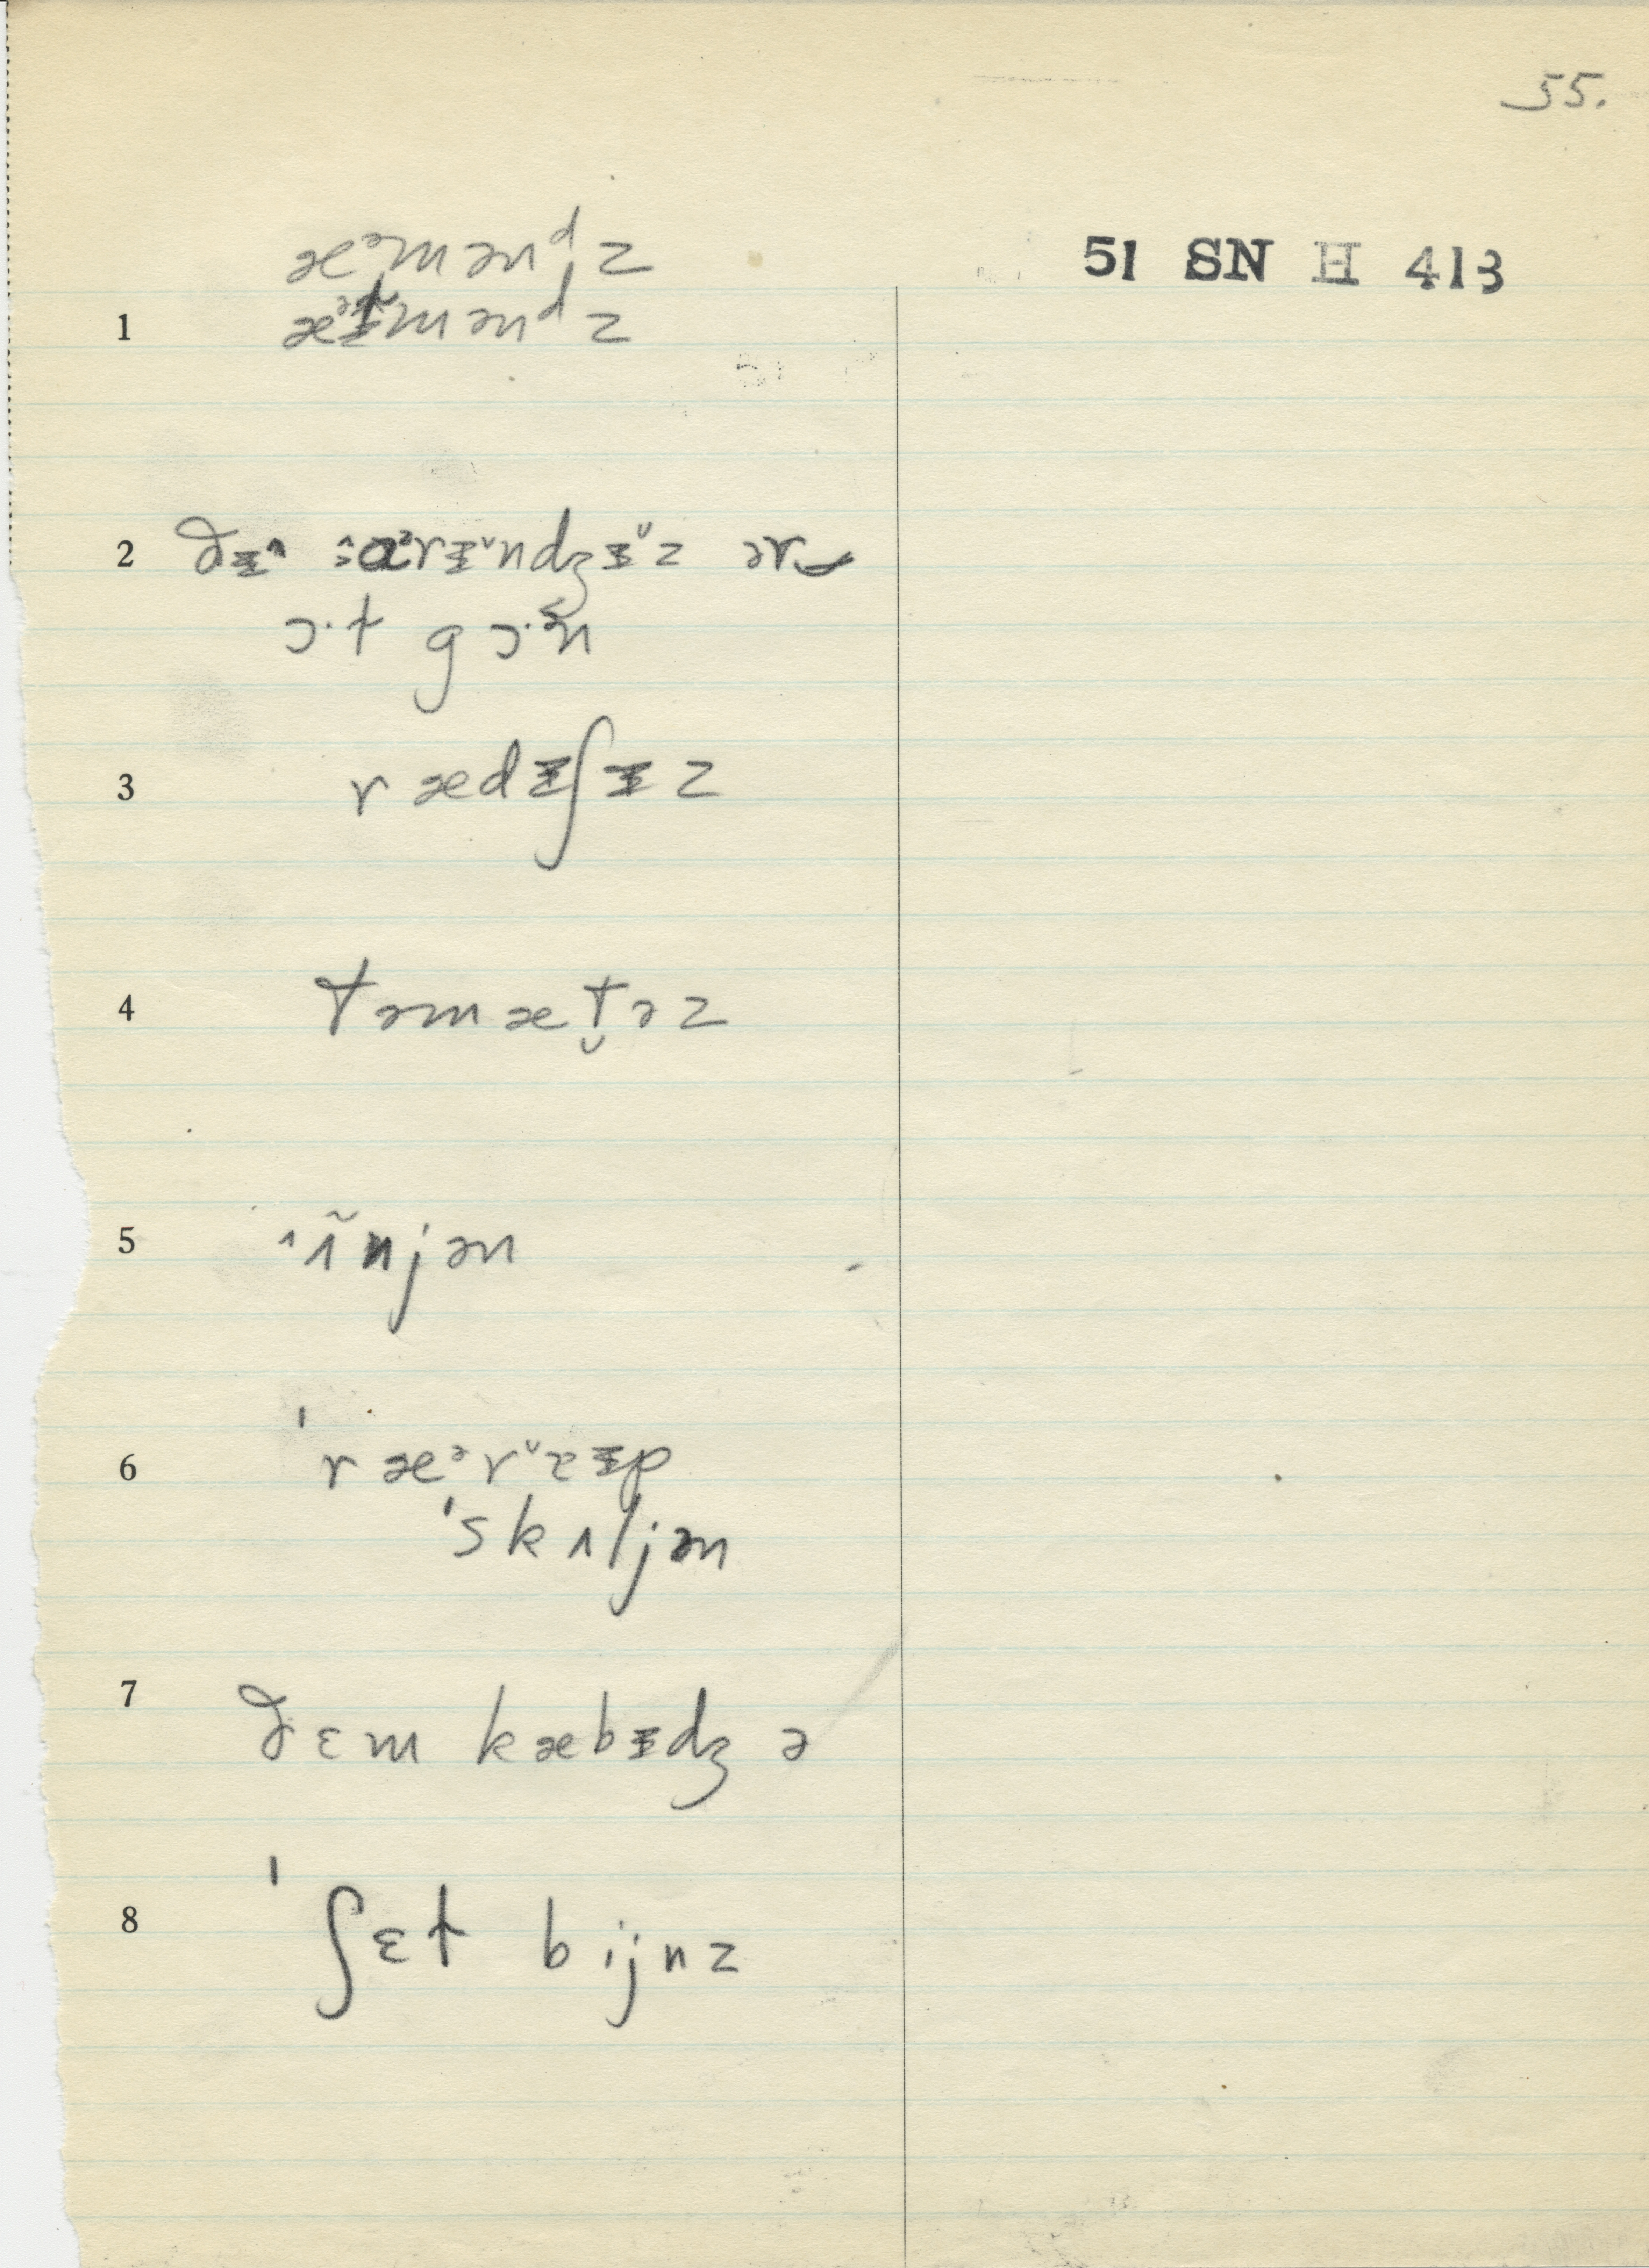 55.
51 SN H 413
æᵊmənᵈz
1 æᵊmənᵈz
2 ðɨ^ :ɑᵊrɨ˅ndʒɨ˅z ər‿
ɔ·t gɔ·n
3 rædɨʃɨz
4 təmæt̬əz
5 ˈɪ̃njən
6 ˈræᵊr˅ɨp
ˈskɪljən
7 ðɛm kæbɨdʒ ə
8 ˈʃɛt bijnz